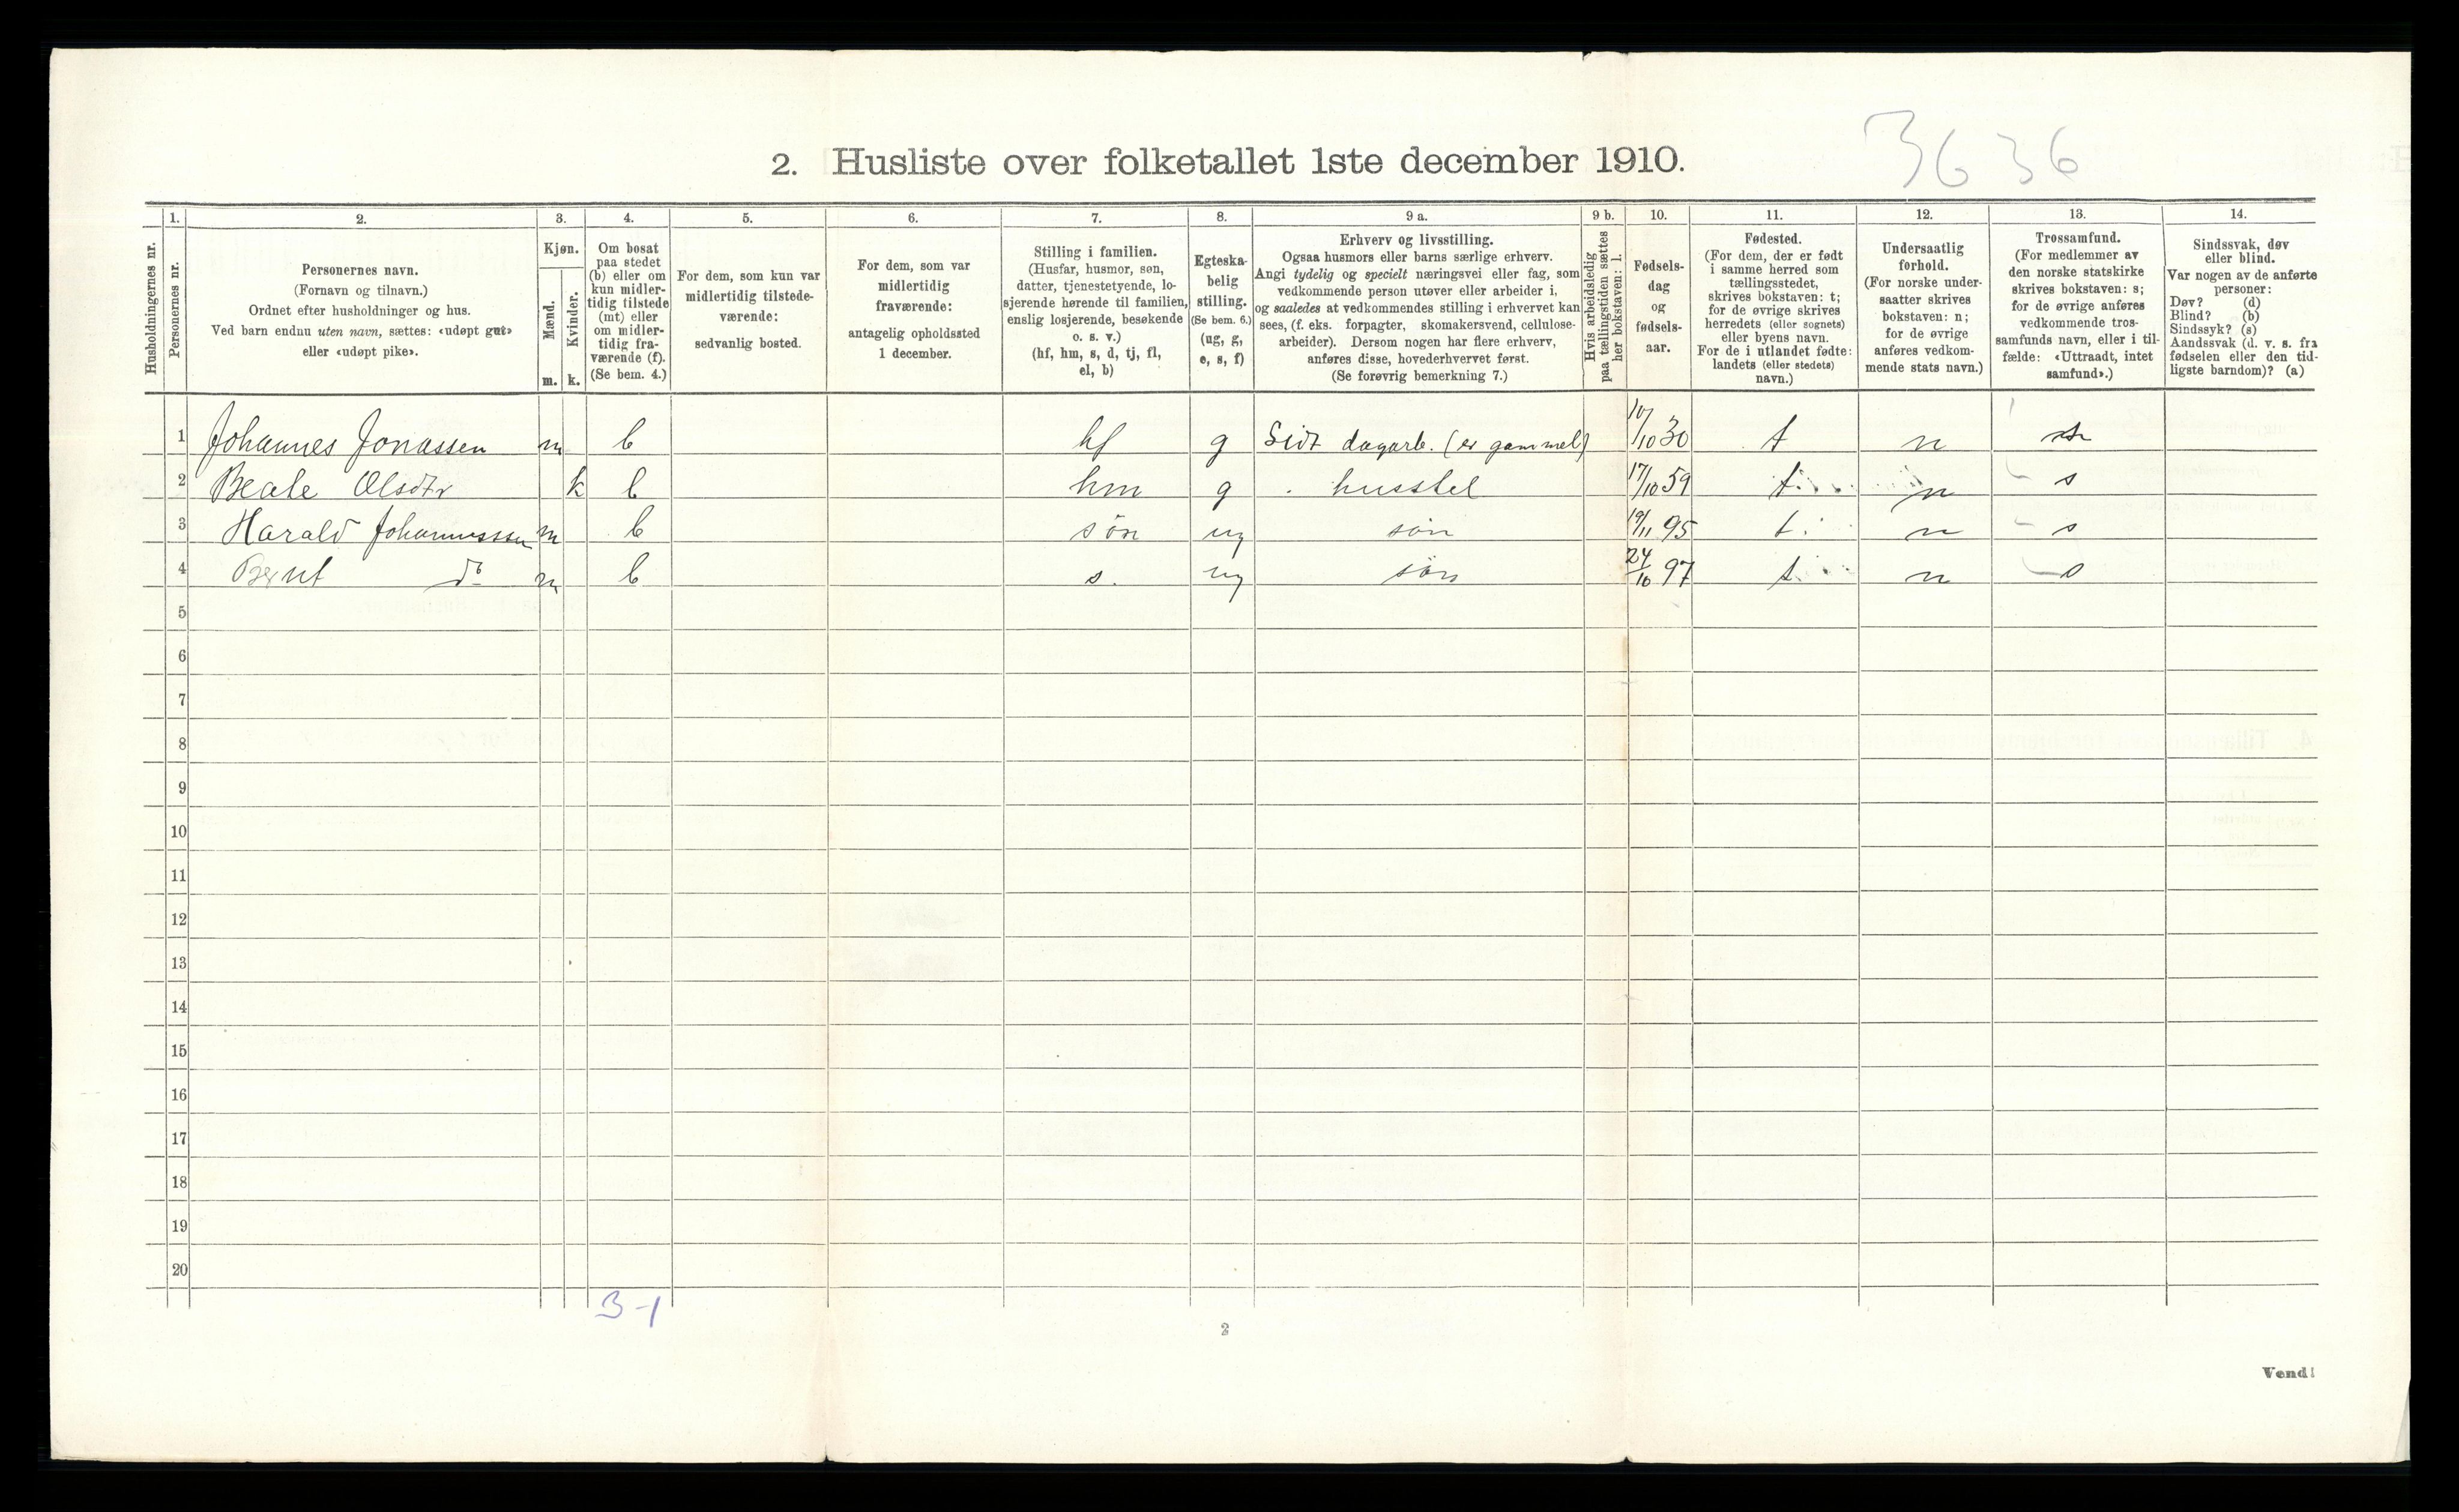 3636
2. Husliste over folketallet 1ste december 1910.
Husholdningernes nr.
1.
Personernes nr.
2.
Personernes navn.
(Fornavn og tilnavn.)
Ordnet efter husholdninger og hus.
Ved barn endnu uten navn, sættes: «udøpt gut»
eller «udøpt pike».
3.
Kjøn.
Mænd.
m.
Kvinder.
k.
4.
Om bosat
paa stedet
(b) eller om
kun midler-
tidig tilstede
(mt) eller
om midler-
tidig fra-
værende (f).
(Se bem. 4.)
5.
For dem, som kun var
midlertidig tilstede-
værende:
sedvanlig bosted.
6.
For dem, som var
midlertidig
fraværende:
antagelig opholdssted
1 december.
7.
Stilling i familien.
(Husfar, husmor, søn,
datter, tjenestetyende, lo-
sjerende hørende til familien,
enslig losjerende, besøkende
o. s. v.)
(hf, hm, s, d, tj, fl,
el, b)
8.
Egteska-
belig
stilling.
(Se bem. 6.)
(ug, g,
e, s, f)
9 a.
Erhverv og livsstilling.
Ogsaa husmors eller barns særlige erhverv.
Angi tydelig og specielt næringsvei eller fag, som
vedkommende person utøver eller arbeider i,
og saaledes at vedkommendes stilling i erhvervet kan
sees, (f. eks. forpagter, skomakersvend, cellulose-
arbeider). Dersom nogen har flere erhverv,
anføres disse, hovederhvervet først.
(Se forøvrig bemerkning 7.)
9 b.
Hvis arbeidsledig
paa tællingstiden sættes
her bokstaven: l.
10.
Fødsels-
dag
og
fødsels-
aar.
11.
Fødested.
(For dem, der er født
i samme herred som
tællingsstedet,
skrives bokstaven: t;
for de øvrige skrives
herredets (eller sognets)
eller byens navn.
For de i utlandet fødte:
landets (eller stedets)
navn.)
12.
Undersaatlig
forhold.
(For norske under-
saatter skrives
bokstaven: n;
for de øvrige
anføres vedkom-
mende stats navn.)
13.
Trossamfund.
(For medlemmer av
den norske statskirke
skrives bokstaven: s;
for de øvrige anføres
vedkommende tros-
samfunds navn, eller i til-
fælde: «Uttraadt, intet
samfund».)
14.
Sindssvak, døv
eller blind.
Var nogen av de anførte
personer:
Døv? (d)
Blind? (b)
Sindssyk? (s)
Aandssvak (d. v. s. fra
fødselen eller den tid-
ligste barndom)? (a)
1 Johannes Jonassen m b hf g dagarb. (er gammel) 10/10 30 t n
2 Beate Olsdtr k b hm g husstel 17/10 59 t n s
3 Harald Johannessen m b søn ug søn 19/11 95 t n s
4 Bernt do m b s. ug søn 24/10 97 t n s
5
6
7
8
9
10
11
12
13
14
15
16
17
18
19
20
3-1
2
Vend!